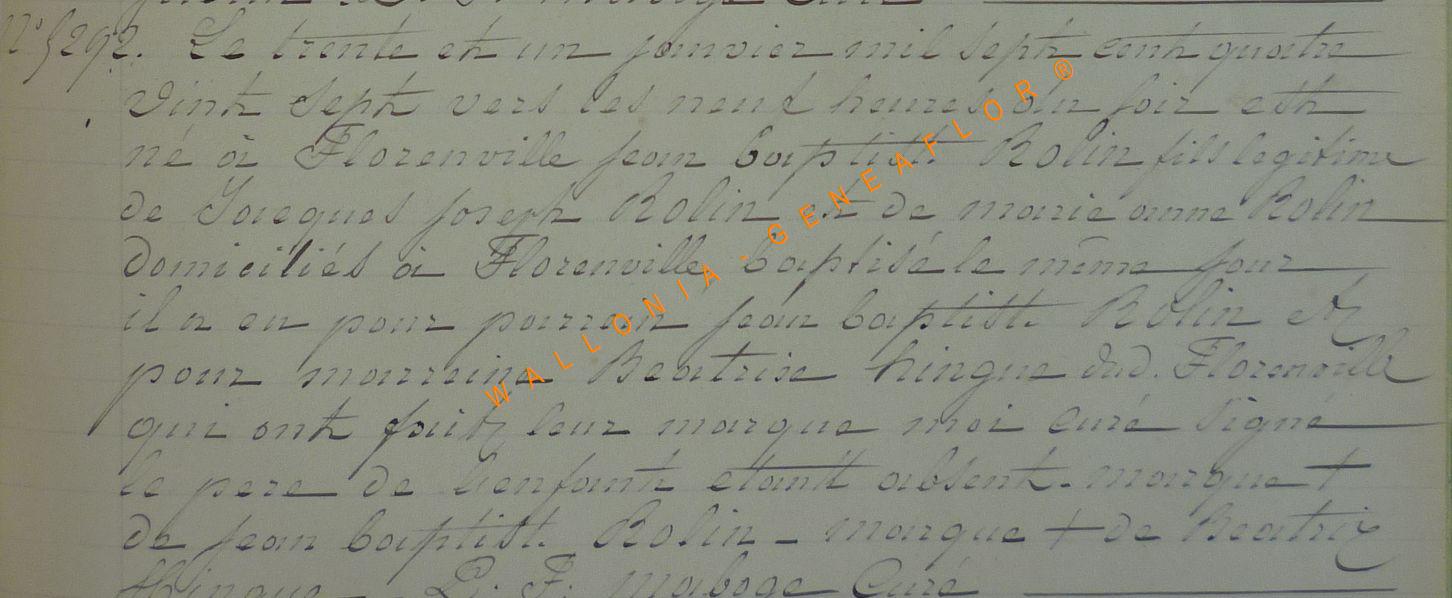 Nº 5292. Le trente et un janvier mil sept cent quatre
vint sept vers les neuf heures du soir est
né à Florenville jean baptiste Rolin fils legitime
de Jacques joseph Rolin et de marie anne Rolin
domiciliés a Florenville baptisé le même jour
il a eu pour parrain jean baptist. Rolin et
pour marreine Beatrise hingue dud. Florenville
qui ont fait leur marque moi curé signé
le pere de lenfant etant absent. marque +
de jean baptist. Rolin - marque + de Beatrix
hingue - P. F. maboge Curé
WALLONIA - GENEAFLOR ®